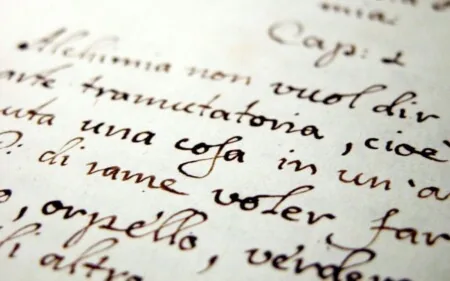 mia
Cap: 2
Alchimia non vuol dir
arte tramutatoria, cioè
uta una cosa in un'a
di rame voler far
o, orpello, verder
li altro